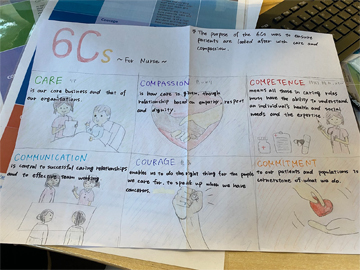 6Cs
~ For Nurse ~
* The purpose of the 6Cs was to ensure
patients are looked after with care and
compassion.
CARE
is our core business and that of
our organisations.
COMPASSION
is how care is given, though
relationship based on empathy, respect
and dignity.
COMPETENCE
means all those in caring roles
must have the ability to understand
an individual's health and social
needs and the expertise
COMMUNICATION
is central to successful caring relationships
and to effective team working
COURAGE
enables us to do the right thing for the people
we care for, to speak up when we have
concerns.
COMMITMENT
to our patients and populations is
cornerstone of what we do.